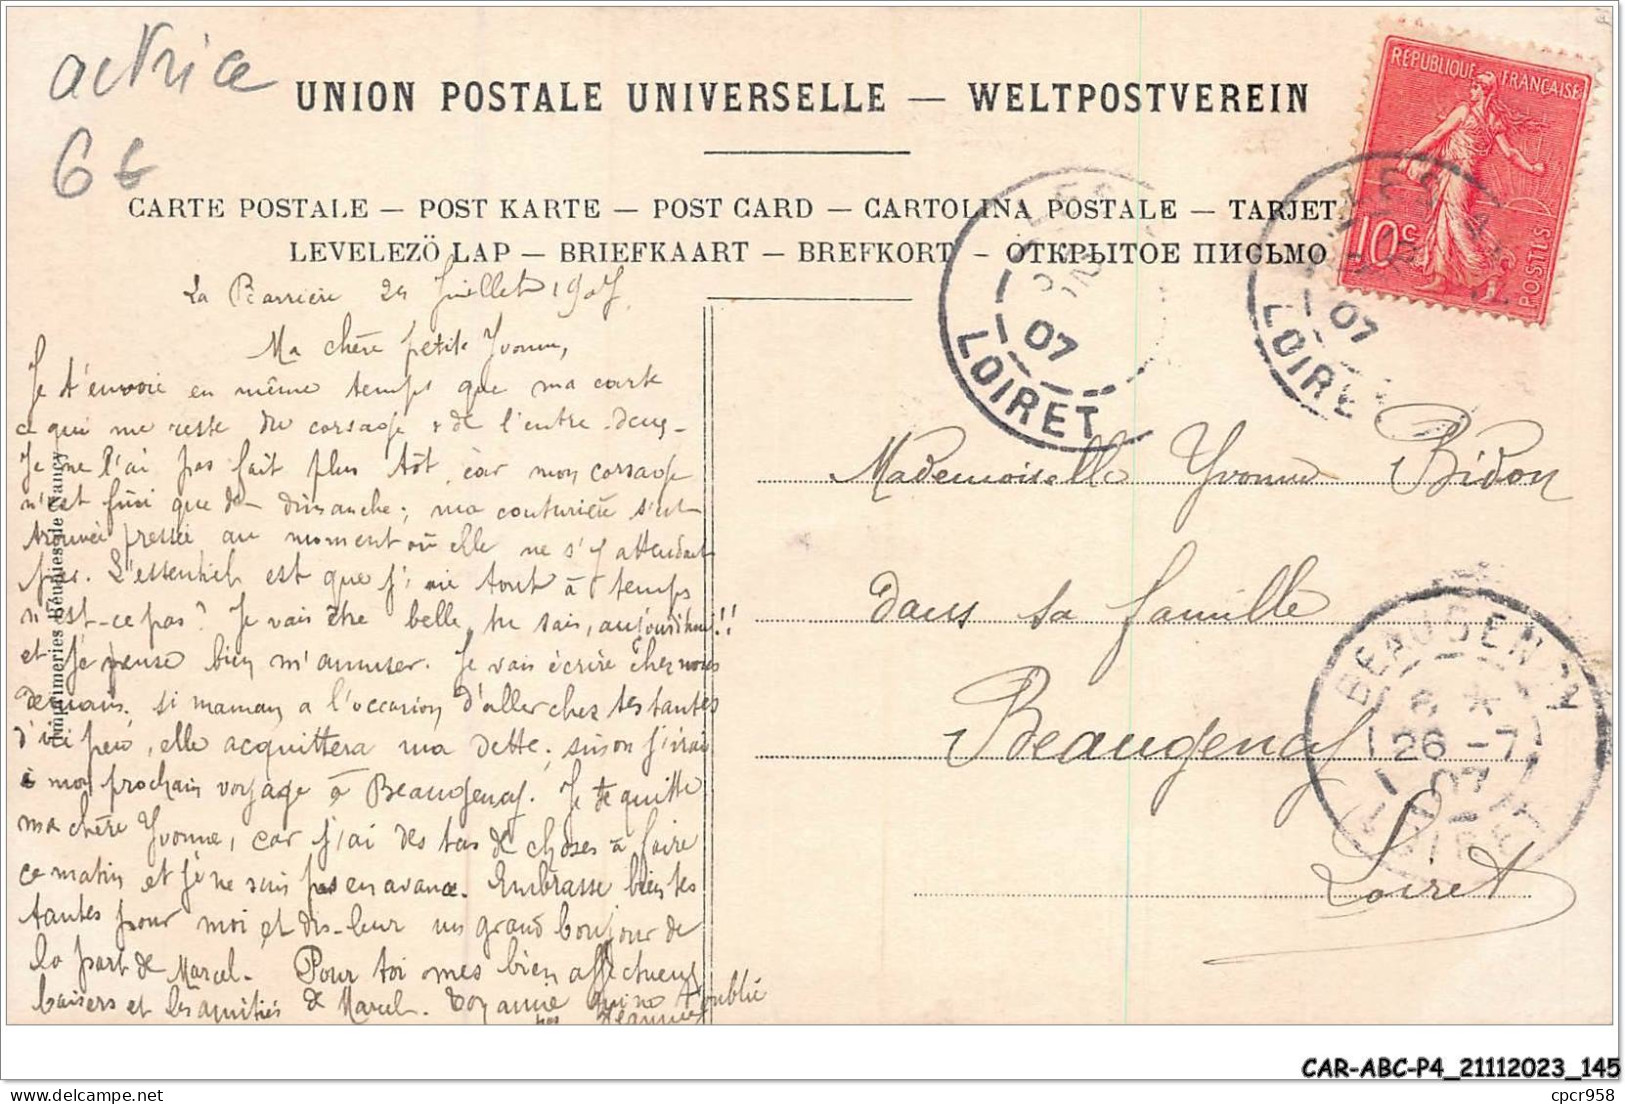 actrice
6€
UNION POSTALE UNIVERSELLE — WELTPOSTVEREIN
CARTE POSTALE — POST KARTE — POST CARD — CARTOLINA POSTALE — TARJET
LEVELEZÖ LAP — BRIEFKAART — BREFKORT — ОТКРЫТОЕ ПИСЬМО
RÉPUBLIQUE FRANÇAISE
10c
POSTES
07
LOIRET
07
LOIRET
La Barrière 25 Juillet 1907
Ma chère petite Yvonne,
Je t'envoie en même temps que ma carte
ce qui me reste du corsage & de l'entre-deux-
Je ne l'ai pas fait plus tôt, car mon corsage
n'est fini que de dimanche; ma couturière s'est
trouvée pressée au moment où elle ne s'y attendait
pas. L'essentiel est que j'aie tout à temps
n'est-ce pas? Je vais être belle, tu sais, aujourd'hui!!
et je pense bien m'amuser. Je vais écrire chez nous
demain, si maman a l'occasion d'aller chez tes tantes
d'ici peu, elle acquittera ma dette; sinon j'irai
à mon prochain voyage à Beaugency. Je te quitte
ma chère Yvonne, car j'ai des tas de choses à faire
ce matin et je ne suis pas en avance. Embrasse bien tes
tantes pour moi et dis-leur un grand bonjour de
la part de Marcel. Pour toi mes bien affectueux
baisers et les amitiés de Marcel. Ton amie qui ne t'oublie
pas Jeanne
Imprimeries Réunies de Nancy
Mademoiselle Yvonne Bidon
dans sa famille
Beaugency
Loiret
BEAUGENCY
6 *
26 -7
07
LOIRET
CAR-ABC-P4_21112023_145
cpcr958